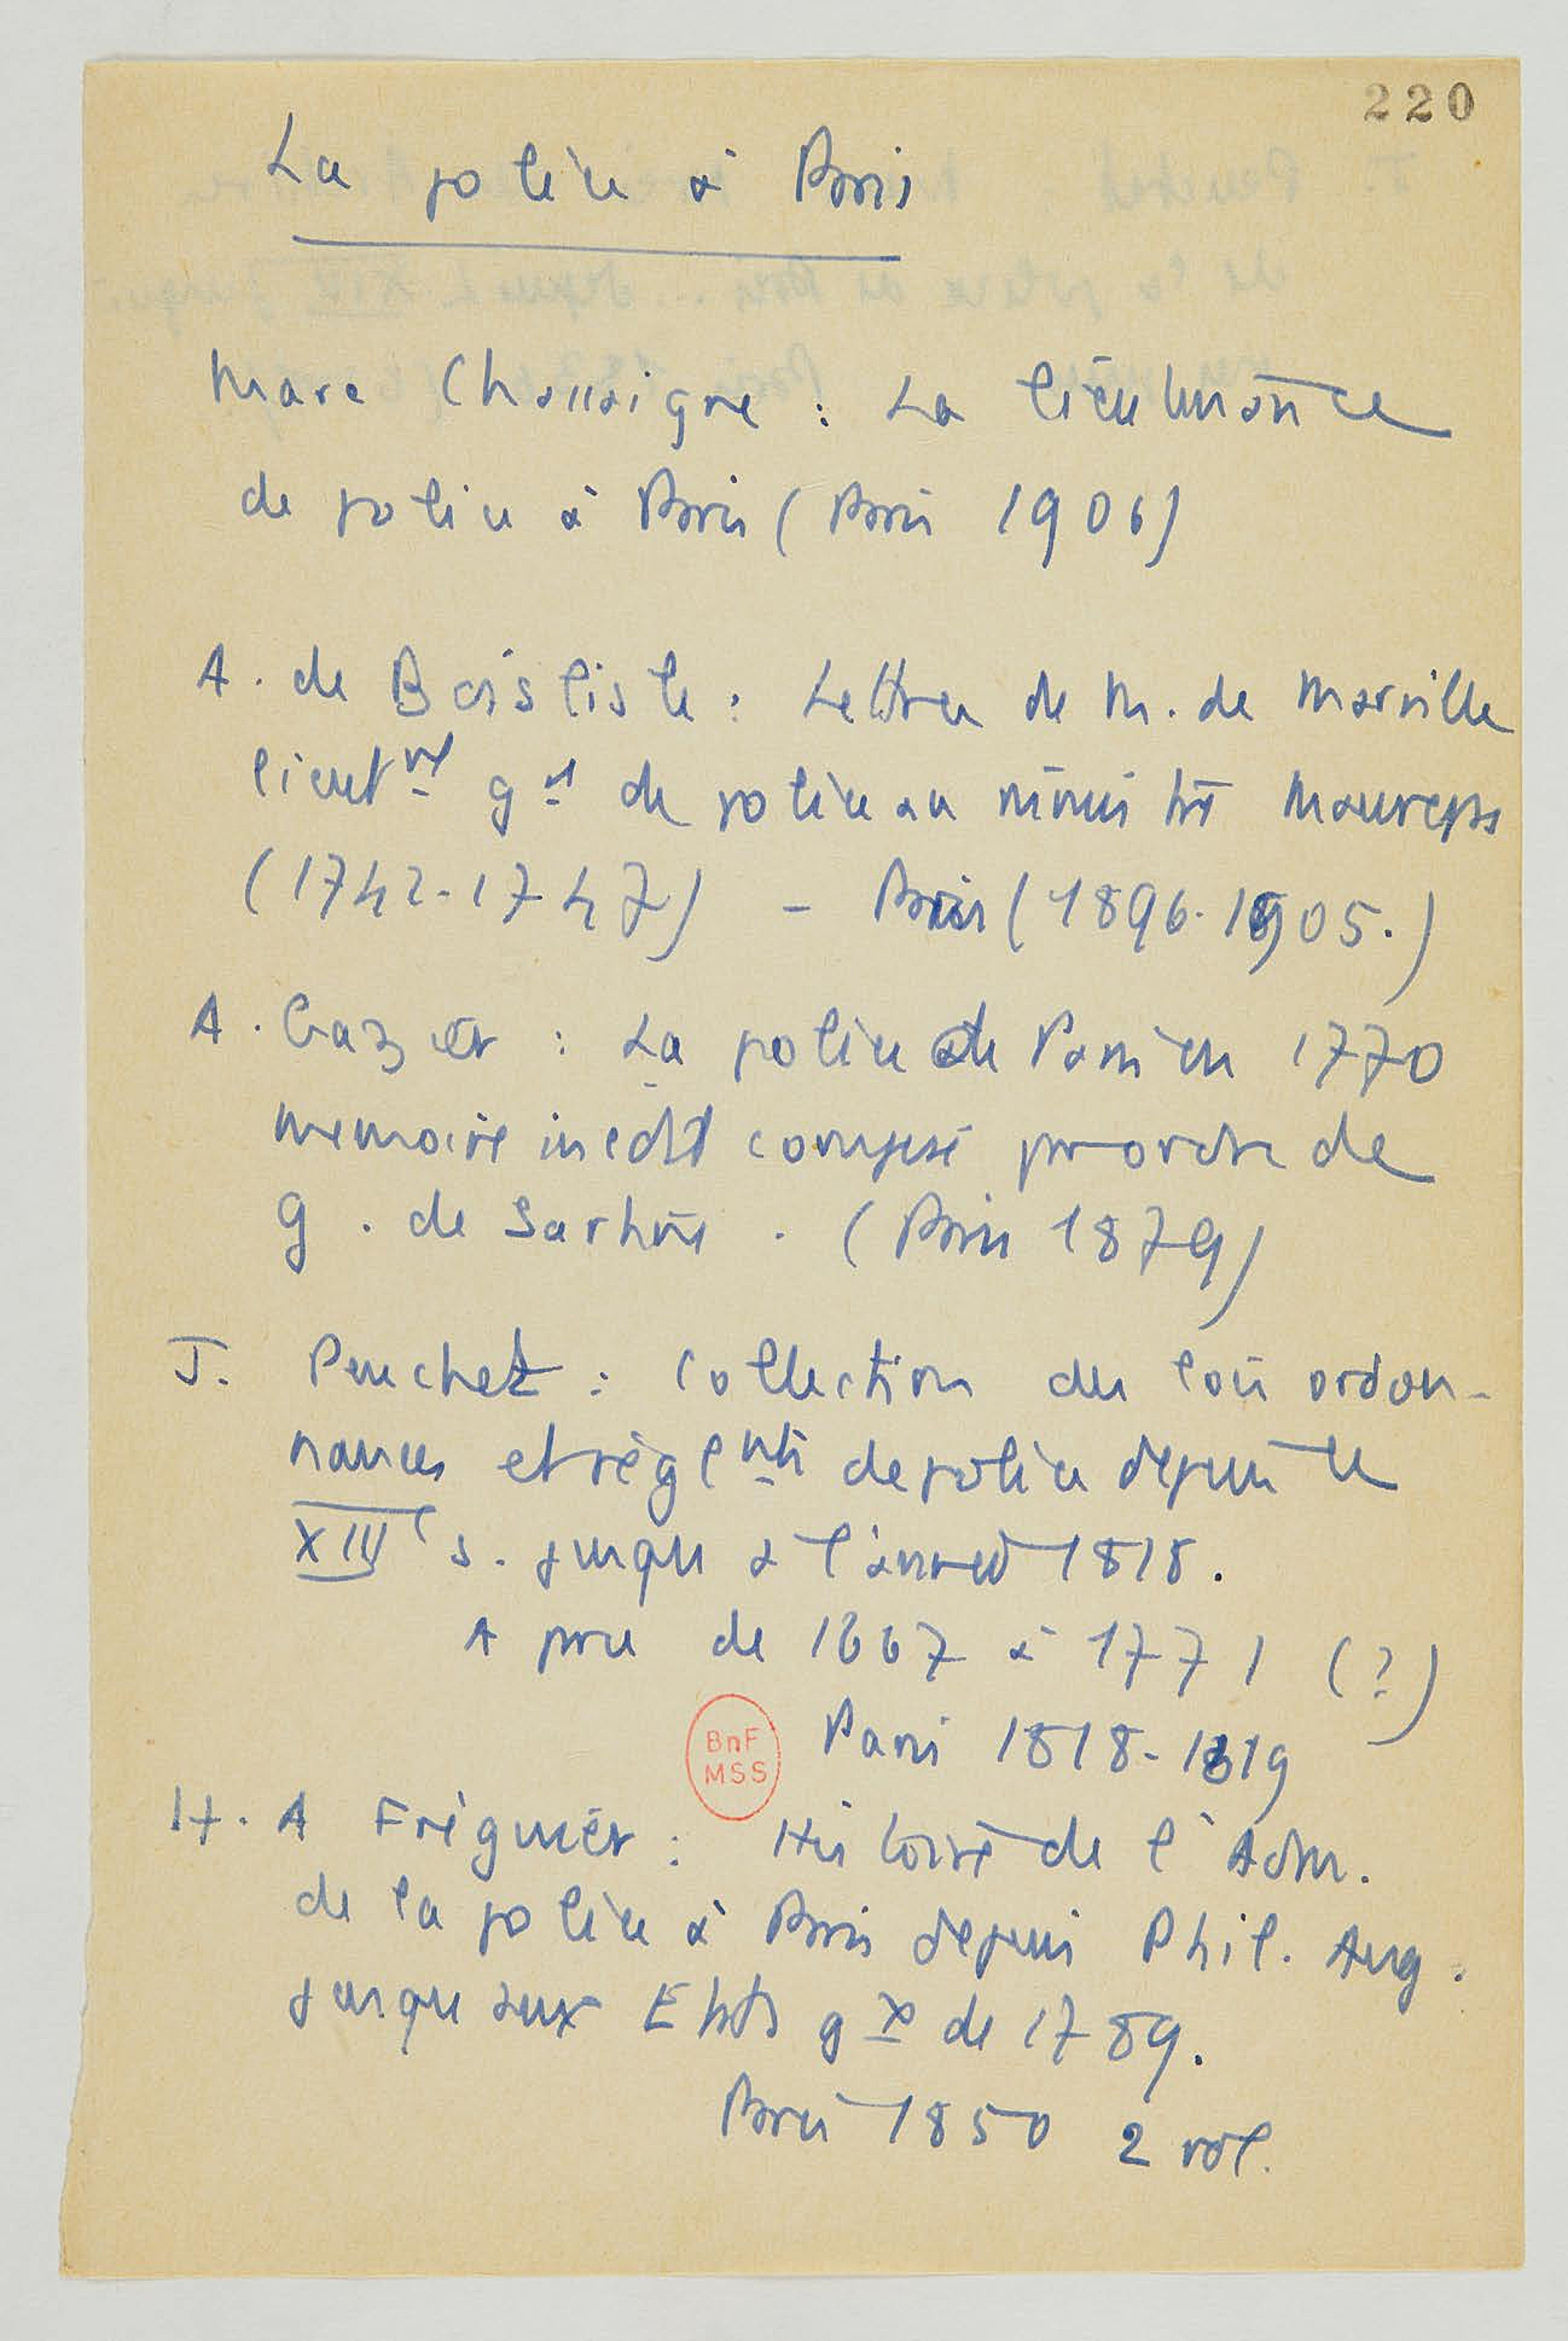 220
La police à Paris
Marc Chassaigne : La lieutenance
de police à Paris (Paris 1906)
A. de Boislisle : Lettres de M. de Marville
lieut^nt g^al de police au ministre Maurepas
(1742-1747) - Paris (1896-1905.)
A. Gazier : La police de Paris en 1770
memoire inedit composé par ordre de
G. de Sartine. (Paris 1879)
J. Peuchet : Collection des lois ordon-
nances et règl^mts de police depuis le
XIII^e s. jusqu'à l'année 1818.
A paru de 1667 à 1771 (?)
Paris 1818-1819
BnF
MSS
H. A Frégier : Histoire de l'Adm.
de la police à Paris depuis Phil. Aug.
jusqu'aux Etats g^x de 1789.
Paris 1850 2 vol.